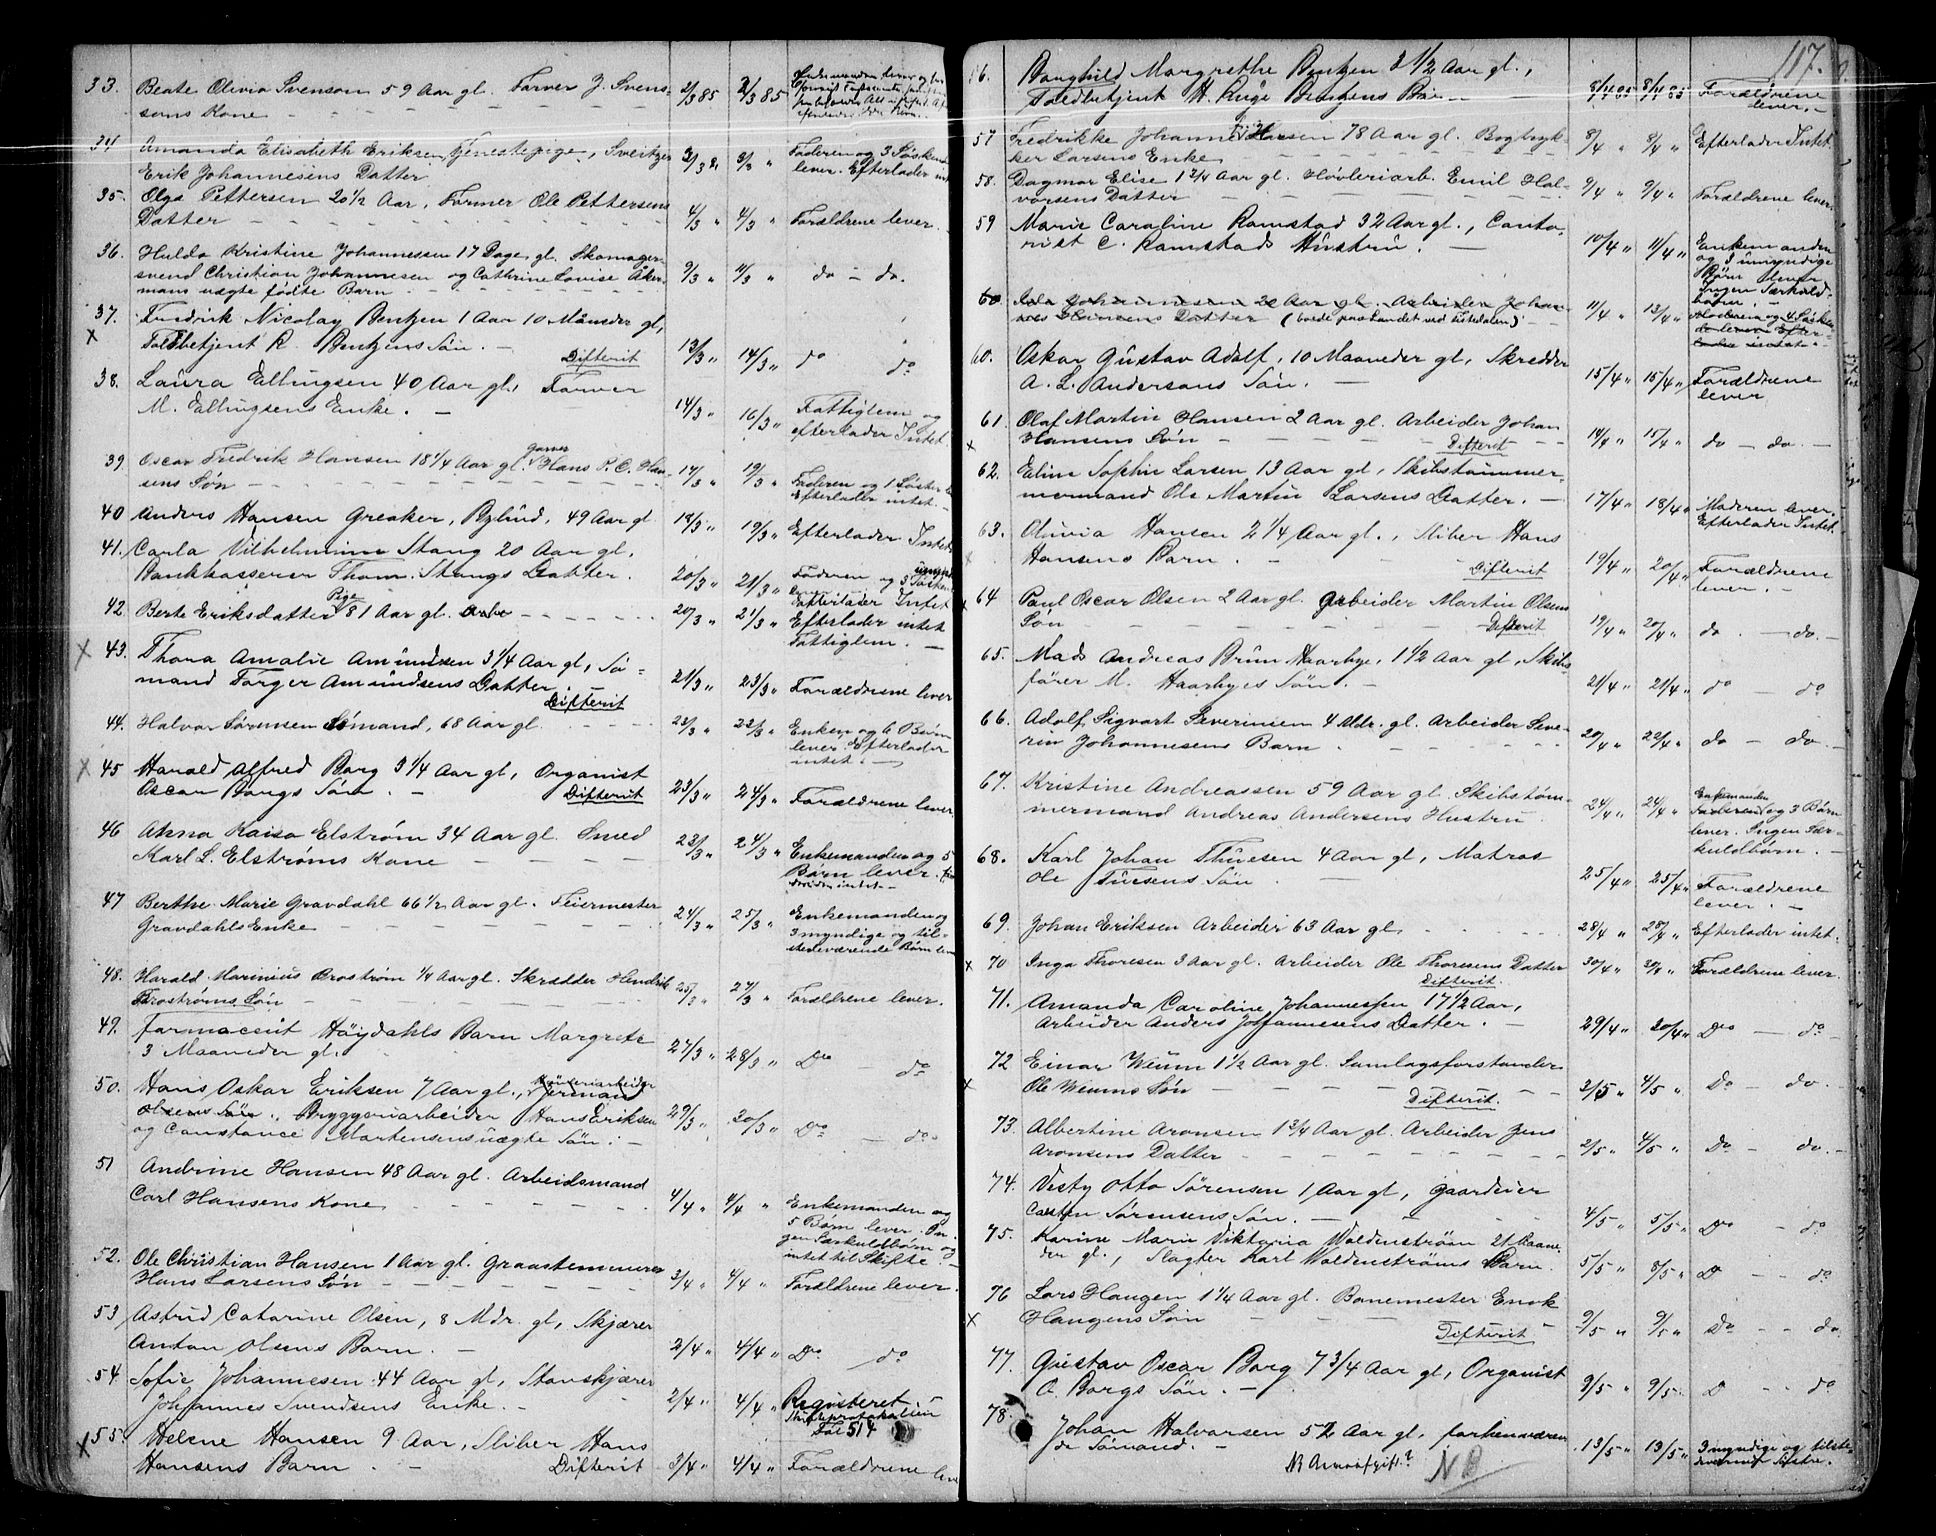 33. Beate Olivia Svenson 59 Aar gl. Farver J. Svens-
sons Kone - - - 2/3 85 2/3 85
34 Amanda Elisabeth Eriksen, Tjenestepige, Sveitzer
Erik Johannesens Datter 3/3 " Faderen og 3 Søskende
lever. Efterlader intet
35. Olga Pettersen 20 1/2 Aar, Former Ole Pettersens
Datter - - - 4/3 " 4/3 " Forældrene lever.
36. Hulda Kristine Johannessen 17 Dage gl. Skomager-
svend Christian Johannesen og Cathrine Lovise Aker-
mans uægte fødte Barn - - - 9/3 " 11/3 " do - do.
37. Fredrik Nicolay Bentzen 1 Aar 10 Måneder gl,
x Toldbetjent R. Bentzens Søn. - Difterit 13/3 " 14/3 " do do
38. Laura Ellingsen 40 Aar gl, Farver
M. Ellingsens Enke. - 14/3 " 16/3 " Fattiglem og
efterlader Intet
39. Oscar Fredrik Hansen 18 1/4 Aar gl. Garver Hans P. C. Han-
sens Søn - - - 17/3 " 19/3 " Faderen og 1 Søster
Efterlader intet. -
40 Anders Hansen Greaker, Bylund, 49 Aar gl 18/3 " 19/3 " Efterlader Intet
41. Carla Vilhelmine Stang 20 Aar gl.
Bankkasserer Thom. Stangs Datter. 20/3 " 21/3 " Faderen og 3 Søskende
Efterlader Intet
42. Berte Eriksdatter Pige 81 Aar gl. - - - 20/3 " 21/3 " Efterlader intet
Fattiglem. -
x 43. Thora Amalie Amundsen 3 1/4 Aar gl, Sø-
mand Torger Amundsens Datter. Difterit 21/3 " 23/3 " Forældrene lever
44. Halvor Sørensen Sømand, 68 Aar gl. - - - 23/3 " 23/3 " Enken og 6 Børn
lever. Efterlader
intet. -
x 45 Harald Alfred Borg 3 1/4 Aar gl, Organist
Oscar Borgs Søn. - Difterit 23/3 " 24/3 " Forældrene lever.
46 Anna Kaisa Elstrøm 34 Aar gl. Smed
Karl L. Elstrøms Kone - - - 23/3 " 24/3 " Enkemanden og 5
Børn lever.
47 Berthe Marie Gravdahl 66 1/2 Aar gl. Feiermester
Gravdahls Enke - - - 24/3 " 25/3 " Enkemanden og
3 myndige og til-
stedeværende Børn lever
48. Harald Marinius Brostrøm 1/4 Aar gl. Skrædder Hendrik
Brostrøms Søn - - - 25/3 " 27/3 " Forældrene lever.
49. Farmaceut Høydahls Barn Margrete
3 Maaneder gl. 27/3 " 28/3 " Do - do
50. Hans Oskar Eriksen 7 Aar gl.,
Olsens Søn. Bryggeriarbeider Hans Eriksen
og Constance Martensens uægte Søn. - 29/3 " 30/3 " Do - do
51 Andrine Hansen 48 Aar gl. Arbeidsmand
Carl Hansens Kone - - - 4/4 " 4/4 " Enkemanden og
5 Børn lever. In-
gen Særkuldbørn og
intet til Skifte. -
52. Ole Christian Hansen 1 Aar gl. Graastenmurer
Hans Larsens Søn - - - 3/4 " 4/4 " Forældrene lever.
53 Astrid Catarine Olsen, 8 Mdr. gl, Skjærer
Anton Olsens Barn. - 2/4 " 4/4 " Do do
54. Sofie Johannesen 44 Aar gl, Stenskjærer
Johannes Svendsens Enke. - 2/4 " 4/4 " Registeret
Skifteprotokollen
Fol 514
x 55. Helene Hansen 9 Aar, Sliber Hans
Hansens Barn - Difterit 3/4 " 4/4 " Forældrene lever
117.
56. Borghild Margrethe Bentzen 2 1/2 Aar gl,
Toldbetjent H. Ruge Bentzens Barn - 8/4 85 8/4 85 Forældrene
lever. -
57 Fredrikke Johanne Larsen 78 Aar gl. Bogtryk-
ker Larsens Enke - - - 8/4 " 8/4 " Efterlader Intet
58. Dagmar Elise 1 3/4 Aar gl. Høvleriarb. Emil Hal-
vorsens Datter - - - 9/4 " 9/4 " Forældrene lever.
59 Marie Caroline Ramstad 32 Aar gl., Conto-
rist C. Ramstads Hustru. - 10/4 " 11/4 " Enkemanden
og 3 umyndige
Børn lever
Ingen Særkuld-
børn. -
60. Johannessen 22 Aar gl. Arbeider Johan-
nes Datter (boede paa Landet ved Tistedalen) 11/4 " 13/4 " Moderen og 4 Søsken-
de lever. Efter-
lader intet.
60. Oskar Gustav Adolf, 10 Maaneder gl, Skredder
A. L. Andersons Søn. - 15/4 " 15/4 " Forældrene
lever
61. Olaf Martin Hansen 2 Aar gl. Arbeider Johan
x Hansens Søn - - - Difterit 14/4 " 15/4 " do - do. -
62. Eline Sophie Larsen 13 Aar gl, Skibstømmer-
mermand Ole Martin Larsens Datter. - 17/4 " 18/4 " Moderen lever.
Efterlader Intet.
63. Olivia Hansen 2 1/4 Aar gl., Sliber Hans
x Hansens Barn. - Difterit 19/4 " 20/4 " Forældrene
lever. -
x 64 Paul Oscar Olsen 2 Aar gl. Arbeider Martin Olsens
Søn - - - Difterit 19/4 " 20/4 " do. - do. -
65. Mads Andreas Brun Haarbye, 1 1/2 Aar gl, Skibs-
fører M. Haarbyes Søn. - 21/4 " 21/4 " do - do
66. Adolf Sigvart Severinsen 4 Mdr. gl. Arbeider Seve-
rin Johannesens Barn - - - 20/4 " 22/4 " do - do. -
67. Kristine Andreassen 59 Aar gl. Skibstøm-
mermand Andreas Andersens Hustru 24/4 " 24/4 " Enkemanden og 3 Børn
lever. Ingen Sær-
kuldbørn. -
68. Karl Johan Thuesen 4 Aar gl, Matros
Ole Tuesens Søn - 25/4 " 25/4 " Forældrene
lever. -
69. Johan Eriksen Arbeider 63 Aar gl - - - 28/4 " 28/4 " Efterlader intet.
x 70 Inga Thoresen 3 Aar gl. Arbeider Ole Thoresens Datter
Difterit. 30/4 " 30/4 " Forældrene lever.
71. Amanda Caroline Johannessen 17 1/2 Aar,
Arbeider Anders Johannesens Datter. - 29/4 " 30/4 " Do - do
72 Einar Wium 1 1/2 Aar gl. Samlagsforstander
x Ole Wiums Søn - - - Difterit. 3/5 " 4/5 " Do do.
73. Albertine Aronsen 1 3/4 Aar gl. Arbeider Jens
Aronsens Datter - - - 2/5 " 4/5 " Do - do. -
74. Visty Otto Sørensen 1 Aar gl, Gaardeier
Casten Sørensens Søn. - 4/5 " 5/5 " Do - do
75. Karine Marie Viktoria Woldenstrøm 21 Maane-
der gl., Slagter Karl Woldenstrøms Barn. 5/5 " 8/5 " D - - do
76 Lars Haugen 1 1/4 Aar gl. Banemester Enok
x Haugens Søn - - - Difterit 9/5 " 9/5 " Do - - do
77. Gustav Oscar Borg 7 3/4 Aar gl, Organist
O. Borgs Søn. - 9/5 " 9/5 " D - - do
78. Johan Halvorsen 52 Aar gl, forhenværen-
de Sømand. - 13/5 " 13/5 " 3 myndige og tilste-
deværende
NB Arveafgift? NB